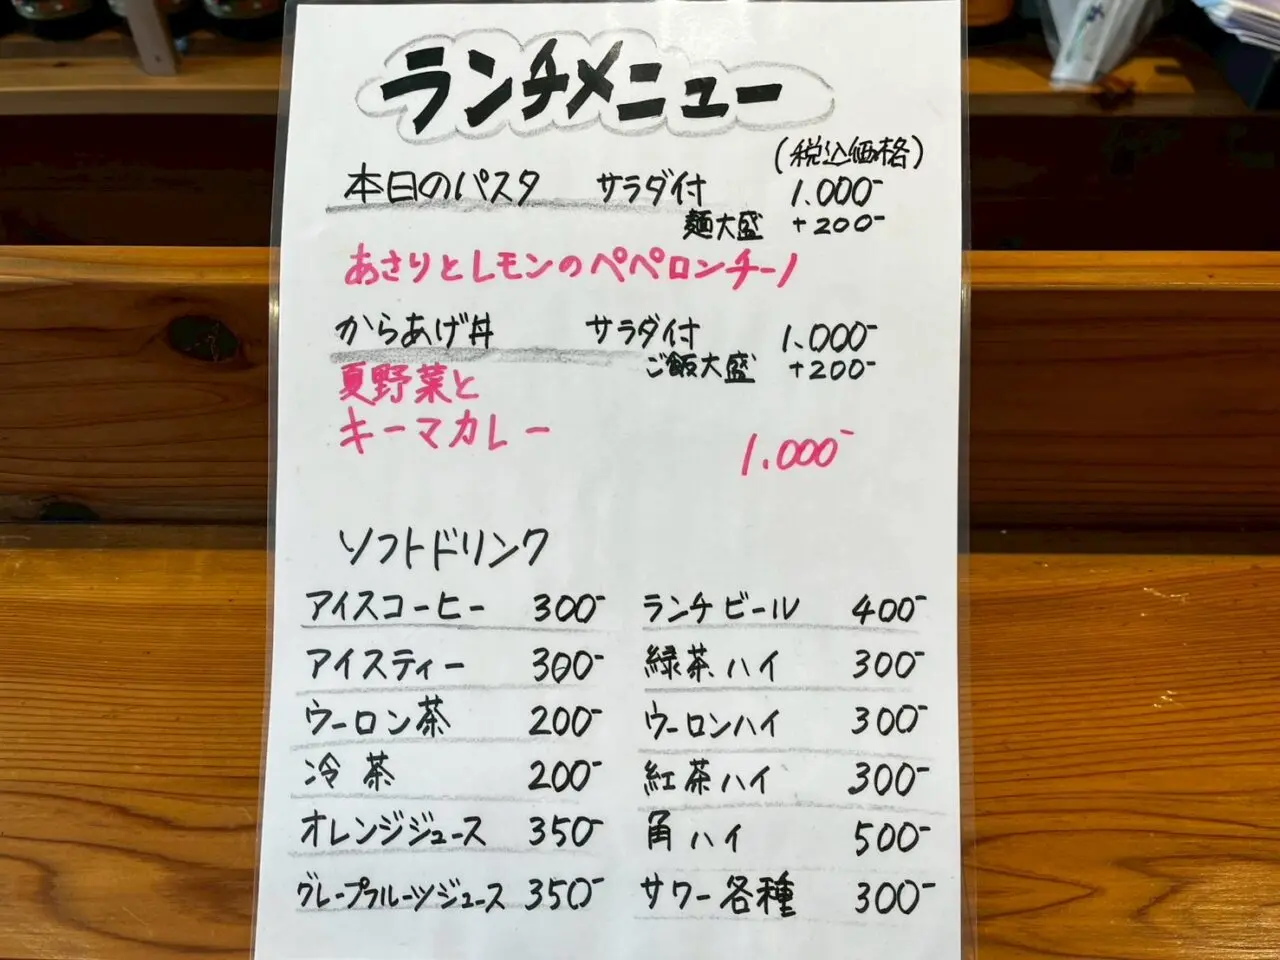 ランチメニュー
(税込価格)
本日のパスタ サラダ付 1.000-
麺大盛 +200-
あさりとレモンのペペロンチーノ
からあげ丼 サラダ付 1.000-
ご飯大盛 +200-
夏野菜と
キーマカレー 1.000-
ソフトドリンク
アイスコーヒー 300- ランチビール 400-
アイスティー 300- 緑茶ハイ 300-
ウーロン茶 200- ウーロンハイ 300-
冷茶 200- 紅茶ハイ 300-
オレンジジュース 350- 角ハイ 500-
グレープフルーツジュース 350- サワー各種 300-